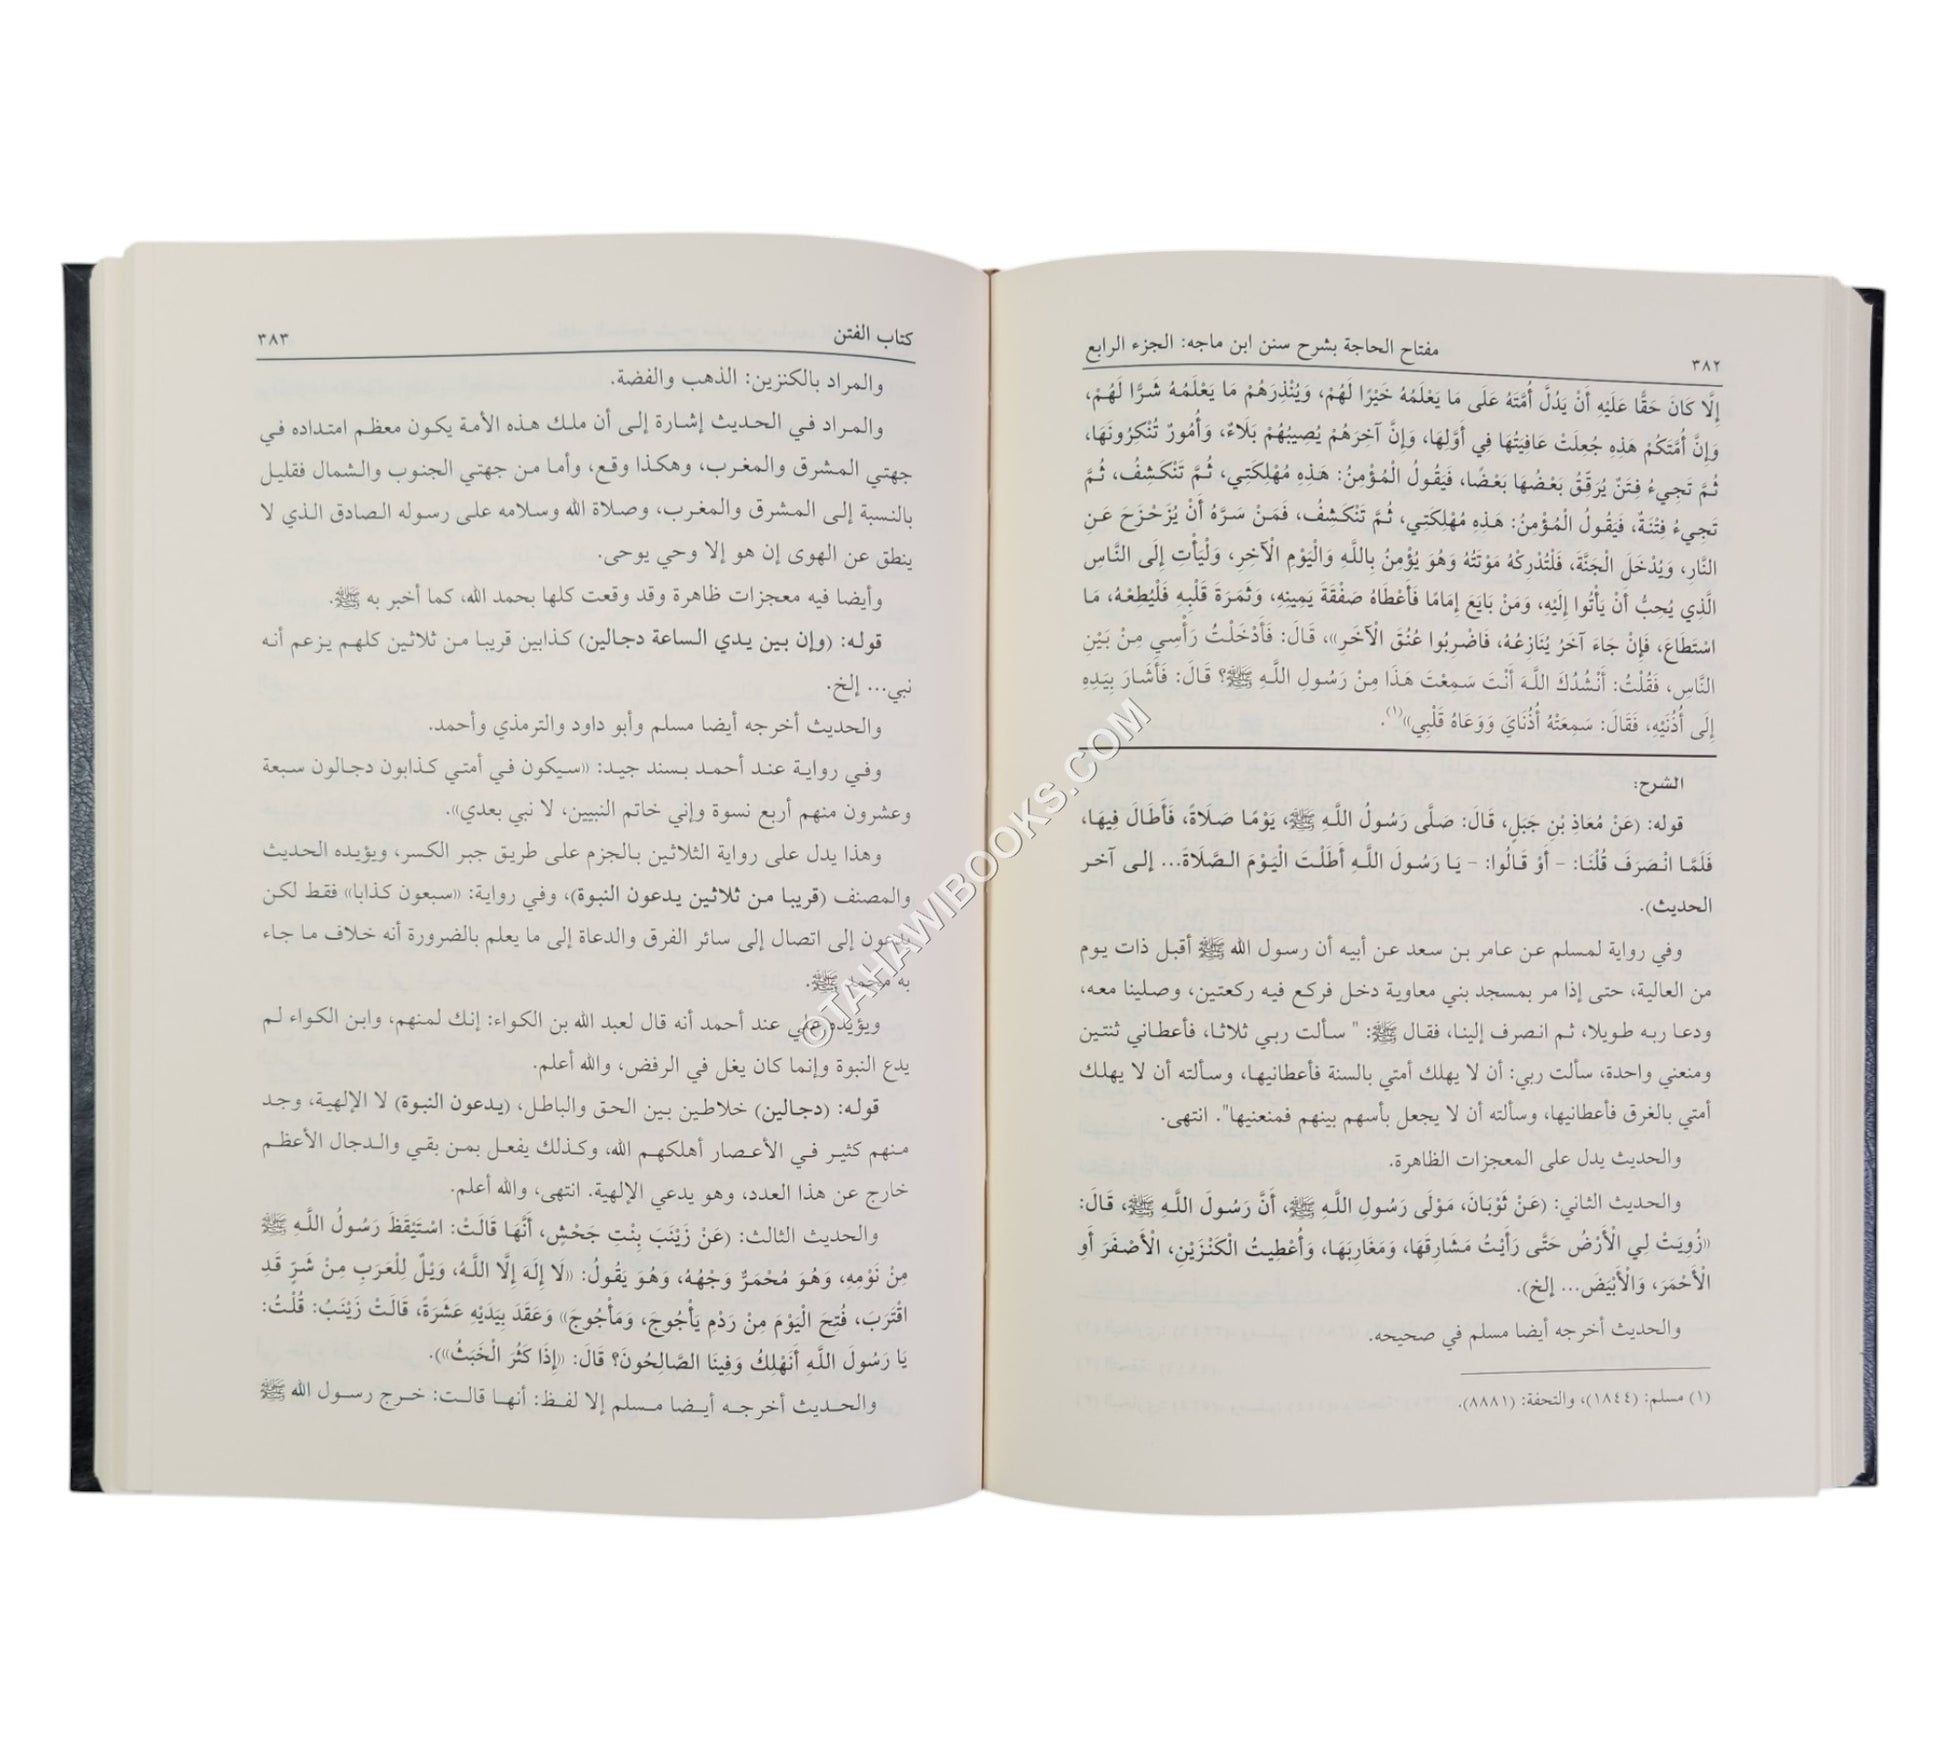 ٣٨٢
مفتاح الحاجة بشرح سنن ابن ماجه: الجزء الرابع
إِلَّا كَانَ حَقًّا عَلَيْهِ أَنْ يَدُلَّ أُمَّتَهُ عَلَى مَا يَعْلَمُهُ خَيْرًا لَهُمْ، وَيُنْذِرَهُمْ مَا يَعْلَمُهُ شَرًّا لَهُمْ،
وَإِنَّ أُمَّتَكُمْ هَذِهِ جُعِلَتْ عَافِيَتُهَا فِي أَوَّلِهَا، وَإِنَّ آخِرَهُمْ يُصِيبُهُمْ بَلَاءٌ، وَأُمُورٌ تُنْكِرُونَهَا،
ثُمَّ تَجِيءُ فِتَنٌ يُرَقِّقُ بَعْضُهَا بَعْضًا، فَيَقُولُ الْمُؤْمِنُ: هَذِهِ مُهْلِكَتِي، ثُمَّ تَنْكَشِفُ، ثُمَّ
تَجِيءُ فِتْنَةٌ، فَيَقُولُ الْمُؤْمِنُ: هَذِهِ مُهْلِكَتِي، ثُمَّ تَنْكَشِفُ، فَمَنْ سَرَّهُ أَنْ يُزَحْزَحَ عَنِ
النَّارِ، وَيُدْخَلَ الْجَنَّةَ، فَلْتُدْرِكْهُ مَوْتَتُهُ وَهُوَ يُؤْمِنُ بِاللَّهِ وَالْيَوْمِ الْآخِرِ، وَلْيَأْتِ إِلَى النَّاسِ
الَّذِي يُحِبُّ أَنْ يَأْتُوا إِلَيْهِ، وَمَنْ بَايَعَ إِمَامًا فَأَعْطَاهُ صَفْقَةَ يَمِينِهِ، وَثَمَرَةَ قَلْبِهِ فَلْيُطِعْهُ، مَا
اسْتَطَاعَ، فَإِنْ جَاءَ آخَرُ يُنَازِعُهُ، فَاضْرِبُوا عُنُقَ الْآخَرِ»، قَالَ: فَأَدْخَلْتُ رَأْسِي مِنْ بَيْنِ
النَّاسِ، فَقُلْتُ: أَنْشُدُكَ اللَّهَ أَنْتَ سَمِعْتَ هَذَا مِنْ رَسُولِ اللَّهِ ﷺ؟ قَالَ: فَأَشَارَ بِيَدِهِ
إِلَى أُذُنَيْهِ، فَقَالَ: سَمِعَتْهُ أُذُنَايَ وَوَعَاهُ قَلْبِي»(١).
الشرح:
قوله: (عَنْ مُعَاذِ بْنِ جَبَلٍ، قَالَ: صَلَّى رَسُولُ اللَّهِ ﷺ، يَوْمًا صَلَاةً، فَأَطَالَ فِيهَا،
فَلَمَّا انْصَرَفَ قُلْنَا: - أَوْ قَالُوا: - يَا رَسُولَ اللَّهِ أَطَلْتَ الْيَوْمَ الصَّلَاةَ... إلى آخر
الحديث).
وفي رواية لمسلم عن عامر بن سعد عن أبيه أن رسول الله ﷺ أقبل ذات يوم
من العالية، حتى إذا مر بمسجد بني معاوية دخل فركع فيه ركعتين، وصلينا معه،
ودعا ربه طويلا، ثم انصرف إلينا، فقال ﷺ: " سألت ربي ثلاثا، فأعطاني ثنتين
ومنعني واحدة، سألت ربي: أن لا يهلك أمتي بالسنة فأعطانيها، وسألته أن لا يهلك
أمتي بالغرق فأعطانيها، وسألته أن لا يجعل بأسهم بينهم فمنعنيها". انتهى.
والحديث يدل على المعجزات الظاهرة.
والحديث الثاني: (عَنْ ثَوْبَانَ، مَوْلَى رَسُولِ اللَّهِ ﷺ، أَنَّ رَسُولَ اللَّهِ ﷺ، قَالَ:
«زُوِيَتْ لِي الْأَرْضُ حَتَّى رَأَيْتُ مَشَارِقَهَا، وَمَغَارِبَهَا، وَأُعْطِيتُ الْكَنْزَيْنِ، الْأَصْفَرَ أَوِ
الْأَحْمَرَ، وَالْأَبْيَضَ... إلخ).
والحديث أخرجه أيضا مسلم في صحيحه.
(١) مسلم: (١٨٤٤)، والتحفة: (٨٨٨١).
كتاب الفتن
٣٨٣
والمراد بالكنزين: الذهب والفضة.
والمراد في الحديث إشارة إلى أن ملك هذه الأمة يكون معظم امتداده في
جهتي المشرق والمغرب، وهكذا وقع، وأما من جهتي الجنوب والشمال فقليل
بالنسبة إلى المشرق والمغرب، وصلاة الله وسلامه على رسوله الصادق الذي لا
ينطق عن الهوى إن هو إلا وحي يوحى.
وأيضا فيه معجزات ظاهرة وقد وقعت كلها بحمد الله، كما أخبر به ﷺ.
قوله: (وإن بين يدي الساعة دجالين) كذابين قريبا من ثلاثين كلهم يزعم أنه
نبي... إلخ.
والحديث أخرجه أيضا مسلم وأبو داود والترمذي وأحمد.
وفي رواية عند أحمد بسند جيد: «سيكون في أمتي كذابون دجالون سبعة
وعشرون منهم أربع نسوة وإني خاتم النبيين، لا نبي بعدي».
وهذا يدل على رواية الثلاثين بالجزم على طريق جبر الكسر، ويؤيده الحديث
والمصنف (قريبا من ثلاثين يدعون النبوة)، وفي رواية: «سبعون كذابا» فقط لكن
يدعون إلى اتصال إلى سائر الفرق والدعاة إلى ما يعلم بالضرورة أنه خلاف ما جاء
به محمد ﷺ.
ويؤيده علي عند أحمد أنه قال لعبد الله بن الكواء: إنك لمنهم، وابن الكواء لم
يدع النبوة وإنما كان يغل في الرفض، والله أعلم.
قوله: (دجالين) خلاطين بين الحق والباطل، (يدعون النبوة) لا الإلهية، وجد
منهم كثير في الأعصار أهلكهم الله، وكذلك يفعل بمن بقي والدجال الأعظم
خارج عن هذا العدد، وهو يدعي الإلهية. انتهى، والله أعلم.
والحديث الثالث: (عَنْ زَيْنَبَ بِنْتِ جَحْشٍ، أَنَّهَا قَالَتْ: اسْتَيْقَظَ رَسُولُ اللَّهِ ﷺ
مِنْ نَوْمِهِ، وَهُوَ مُحْمَرٌّ وَجْهُهُ، وَهُوَ يَقُولُ: «لَا إِلَهَ إِلَّا اللَّهُ، وَيْلٌ لِلْعَرَبِ مِنْ شَرٍّ قَدِ
اقْتَرَبَ، فُتِحَ الْيَوْمَ مِنْ رَدْمِ يَأْجُوجَ، وَمَأْجُوجَ» وَعَقَدَ بِيَدَيْهِ عَشَرَةً، قَالَتْ زَيْنَبُ: قُلْتُ:
يَا رَسُولَ اللَّهِ أَنَهْلِكُ وَفِينَا الصَّالِحُونَ؟ قَالَ: «إِذَا كَثُرَ الْخَبَثُ»).
والحديث أخرجه أيضا مسلم إلا لفظ: أنها قالت: خرج رسول الله ﷺ
©TAHAWIBOOKS.COM